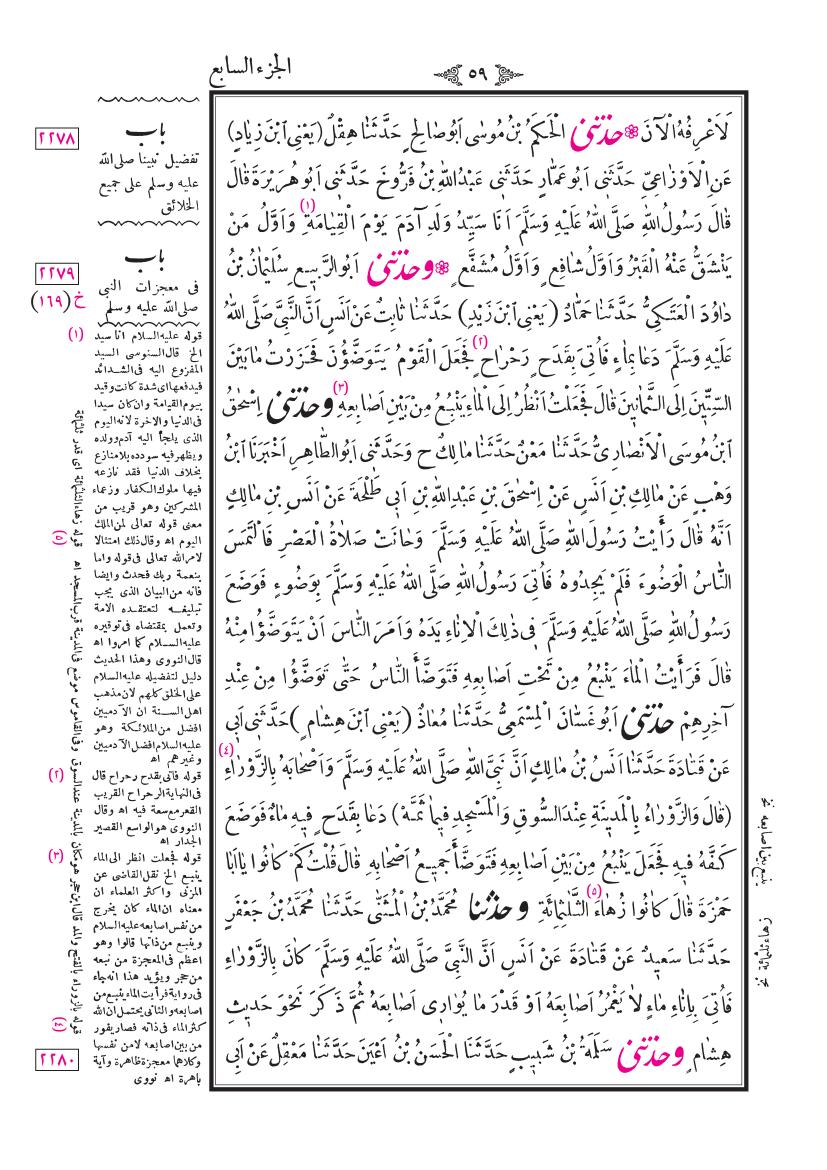 الجزء السابع
٥٩
لَاَعْرِفُهُ الْآنَ ❁ حَدَّثَنِي الْحَكَمُ بْنُ مُوسٰى اَبُو صَالِحٍ حَدَّثَنَا هِقْلٌ (يَعْنِي ابْنَ زِيَادٍ)
عَنِ الْاَوْزَاعِيِّ حَدَّثَنِي اَبُو عَمَّارٍ حَدَّثَنِي عَبْدُاللّٰهِ بْنُ فَرُّوخَ حَدَّثَنِي اَبُو هُرَيْرَةَ قَالَ
قَالَ رَسُولُ اللّٰهِ صَلَّى اللّٰهُ عَلَيْهِ وَسَلَّمَ اَنَا سَيِّدُ وَلَدِ آدَمَ يَوْمَ الْقِيَامَةِ (١) وَاَوَّلُ مَنْ
يَنْشَقُّ عَنْهُ الْقَبْرُ وَاَوَّلُ شَافِعٍ وَاَوَّلُ مُشَفَّعٍ ❁ وحَدَّثَنِي اَبُو الرَّبِيعِ سُلَيْمَانُ بْنُ
دَاوُدَ الْعَتَكِيُّ حَدَّثَنَا حَمَّادٌ (يَعْنِي ابْنَ زَيْدٍ) حَدَّثَنَا ثَابِتٌ عَنْ اَنَسٍ اَنَّ النَّبِيَّ صَلَّى اللّٰهُ
عَلَيْهِ وَسَلَّمَ دَعَا بِمَاءٍ فَاُتِيَ بِقَدَحٍ رَحْرَاحٍ (٢) فَجَعَلَ الْقَوْمُ يَتَوَضَّؤُنَ فَحَزَرْتُ مَا بَيْنَ
السِّتِّينَ اِلَى الثَّمَانِينَ قَالَ فَجَعَلْتُ اَنْظُرُ اِلَى الْمَاءِ يَنْبُعُ مِنْ بَيْنِ اَصَابِعِهِ (٣) وحَدَّثَنِي اِسْحٰقُ
ابْنُ مُوسَى الْاَنْصَارِيُّ حَدَّثَنَا مَعْنٌ حَدَّثَنَا مَالِكٌ ح وَحَدَّثَنِي اَبُو الطَّاهِرِ اَخْبَرَنَا ابْنُ
وَهْبٍ عَنْ مَالِكِ بْنِ اَنَسٍ عَنْ اِسْحٰقَ بْنِ عَبْدِاللّٰهِ بْنِ اَبِي طَلْحَةَ عَنْ اَنَسِ بْنِ مَالِكٍ
اَنَّهُ قَالَ رَأَيْتُ رَسُولَ اللّٰهِ صَلَّى اللّٰهُ عَلَيْهِ وَسَلَّمَ وَحَانَتْ صَلَاةُ الْعَصْرِ فَالْتَمَسَ
النَّاسُ الْوَضُوءَ فَلَمْ يَجِدُوهُ فَاُتِيَ رَسُولُ اللّٰهِ صَلَّى اللّٰهُ عَلَيْهِ وَسَلَّمَ بِوَضُوءٍ فَوَضَعَ
رَسُولُ اللّٰهِ صَلَّى اللّٰهُ عَلَيْهِ وَسَلَّمَ فِي ذٰلِكَ الْاِنَاءِ يَدَهُ وَاَمَرَ النَّاسَ اَنْ يَتَوَضَّؤُا مِنْهُ
قَالَ فَرَأَيْتُ الْمَاءَ يَنْبُعُ مِنْ تَحْتِ اَصَابِعِهِ فَتَوَضَّأَ النَّاسُ حَتّٰى تَوَضَّؤُا مِنْ عِنْدِ
آخِرِهِمْ حَدَّثَنِي اَبُو غَسَّانَ الْمِسْمَعِيُّ حَدَّثَنَا مُعَاذٌ (يَعْنِي ابْنَ هِشَامٍ) حَدَّثَنِي اَبِي
عَنْ قَتَادَةَ حَدَّثَنَا اَنَسُ بْنُ مَالِكٍ اَنَّ نَبِيَّ اللّٰهِ صَلَّى اللّٰهُ عَلَيْهِ وَسَلَّمَ وَاَصْحَابَهُ بِالزَّوْرَاءِ (٤)
(قَالَ وَالزَّوْرَاءُ بِالْمَدِينَةِ عِنْدَ السُّوقِ وَالْمَسْجِدِ فِيمَا ثَمَّهْ) دَعَا بِقَدَحٍ فِيهِ مَاءٌ فَوَضَعَ
كَفَّهُ فِيهِ فَجَعَلَ يَنْبُعُ مِنْ بَيْنِ اَصَابِعِهِ فَتَوَضَّأَ جَمِيعُ اَصْحَابِهِ قَالَ قُلْتُ كَمْ كَانُوا يَا اَبَا
حَمْزَةَ قَالَ كَانُوا زُهَاءَ (٥) الثَّلٰثِمِائَةِ وحَدَّثَنَا مُحَمَّدُ بْنُ الْمُثَنّٰى حَدَّثَنَا مُحَمَّدُ بْنُ جَعْفَرٍ
حَدَّثَنَا سَعِيدٌ عَنْ قَتَادَةَ عَنْ اَنَسٍ اَنَّ النَّبِيَّ صَلَّى اللّٰهُ عَلَيْهِ وَسَلَّمَ كَانَ بِالزَّوْرَاءِ
فَاُتِيَ بِاِنَاءِ مَاءٍ لَا يَغْمُرُ اَصَابِعَهُ اَوْ قَدْرَ مَا يُوَارِي اَصَابِعَهُ ثُمَّ ذَكَرَ نَحْوَ حَدِيثِ
هِشَامٍ وحَدَّثَنِي سَلَمَةُ بْنُ شَبِيبٍ حَدَّثَنَا الْحَسَنُ بْنُ اَعْيَنَ حَدَّثَنَا مَعْقِلٌ عَنْ اَبِي
باب
٢٢٧٨
تفضيل نبينا صلى الله
عليه وسلم على جميع
الخلائق
باب
٢٢٧٩
فى معجزات النبى
صلى الله عليه وسلم
خ (١٦٩)
(١) قوله عليه السلام انا سيد
الخ قال السنوسى السيد
المفزوع اليه فى الشدائد
قيد فعها اى شدة كانت وقيد
بيوم القيامة وان كان سيدا
فى الدنيا والاخرة لانه اليوم
الذى يلجأ اليه آدم وولده
ويظهر فيه سودده بلا منازع
بخلاف الدنيا فقد نازعه
فيها ملوك الكفار وزعماء
المشركين وهو قريب من
معنى قوله تعالى لمن الملك
اليوم اه وقال ذلك امتثالا
لامر الله تعالى فى قوله واما
بنعمة ربك فحدث وايضا
فانه من البيان الذى يجب
تبليغه لتعتقده الامة
وتعمل بمقتضاه فى توقيره
عليه السلام كما امروا اه
قال النووى وهذا الحديث
دليل لتفضيله عليه السلام
على الخلق كلهم لان مذهب
اهل السنة ان الآدميين
افضل من الملائكة وهو
عليه السلام افضل الآدميين
وغيرهم اه
(٢) قوله فاتى بقدح رحراح قال
فى النهاية الرحراح القريب
القعر مع سعة فيه اه وقال
النووى هو الواسع القصير
الجدار اه
(٣) قوله فجعلت انظر الى الماء
ينبع الخ نقل القاضى عن
المزنى واكثر العلماء ان
معناه ان الماء كان يخرج
من نفس اصابعه عليه السلام
وينبع من ذاتها قالوا وهو
اعظم فى المعجزة من نبعه
من حجر ويؤيد هذا انه جاء
فى رواية فرأيت الماء ينبع من
اصابعه والثانى يحتمل ان الله
كثر الماء فى ذاته فصار يفور
من بين اصابعه لا من نفسها
وكلاهما معجزة ظاهرة وآية
باهرة اه نووى
٢٢٨٠
(٤) قوله بالزوراء بالفتح والمد قال ابن حجر هو مكان بالمدينة عند السوق وفى القاموس موضع فى المدينة قرب المسجد اه
(٥) قوله زهاء الثلثمائة اى قدر ثلثمائة
ينبع بين اصابعه نخ
زهاء ثلثمائة نخ